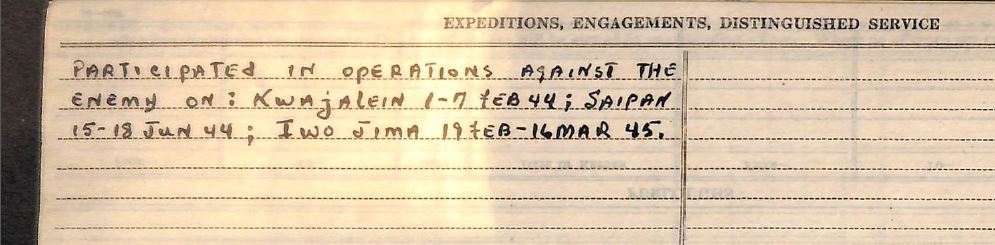 EXPEDITIONS, ENGAGEMENTS, DISTINGUISHED SERVICE
PARTICIPATED IN OPERATIONS AGAINST THE
ENEMY ON: KWAJALEIN 1-7 FEB 44; SAIPAN
15-18 JUN 44; IWO JIMA 19 FEB-16 MAR 45.